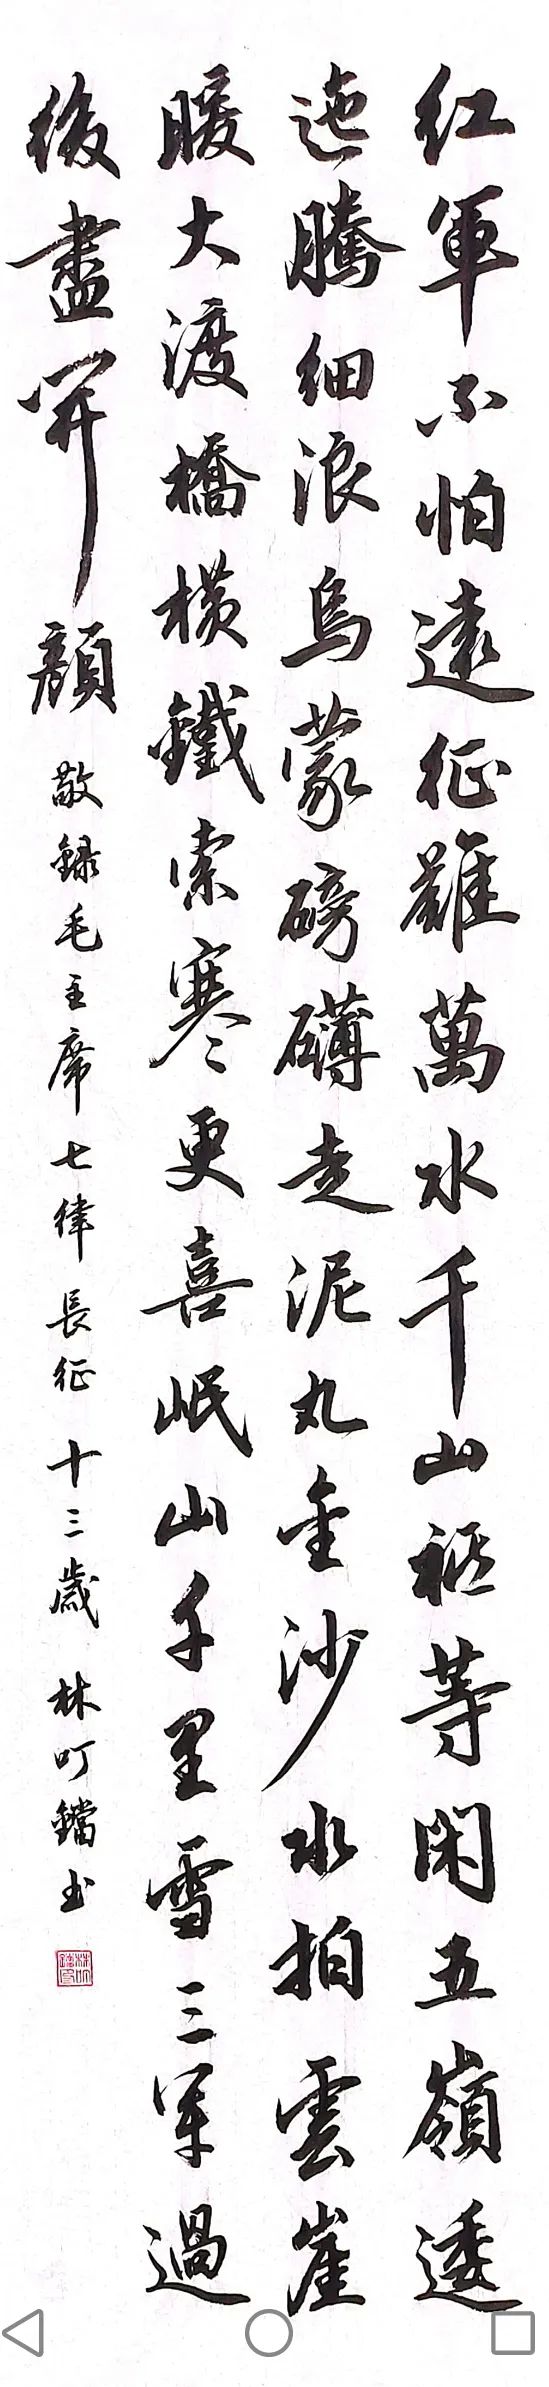 紅軍不怕遠征難萬水千山祇等閑五嶺逶
迤騰細浪烏蒙磅礴走泥丸金沙水拍雲崖
暖大渡橋橫鐵索寒更喜岷山千里雪三軍過
後盡開顏
敬錄毛主席七律長征 十三歲 林叮鐺书